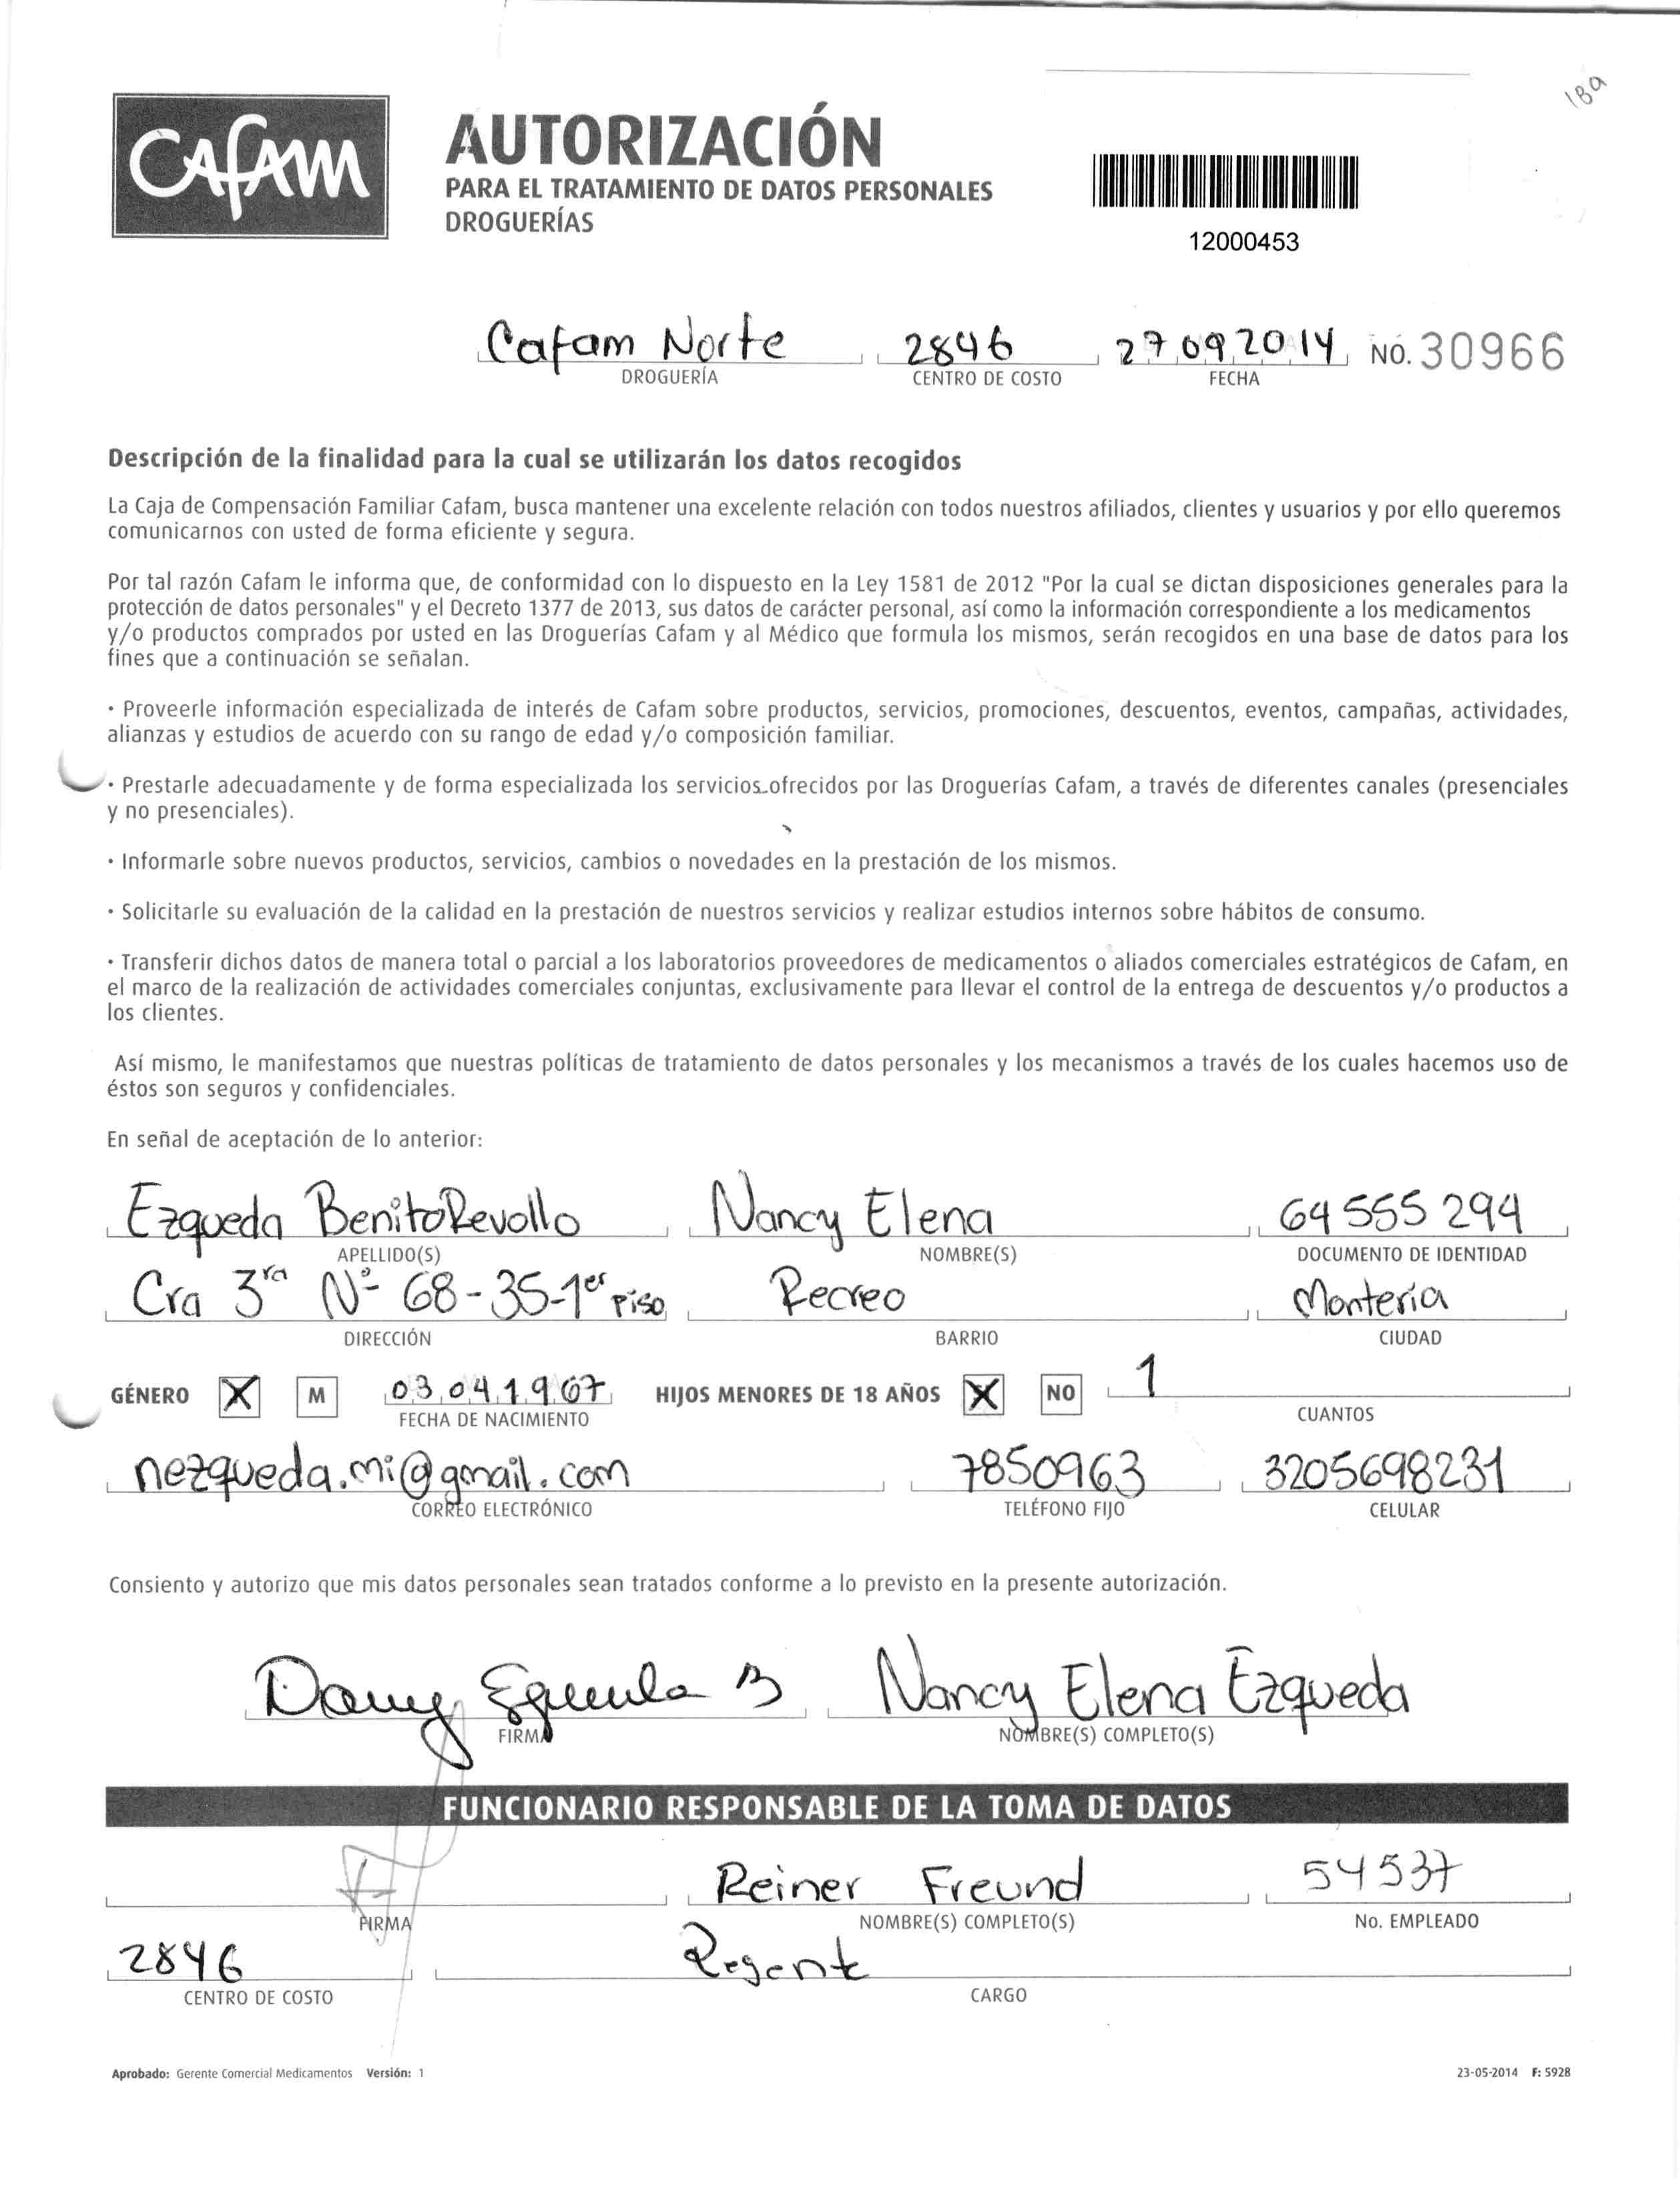 189
CAfAM
AUTORIZACIÓN
PARA EL TRATAMIENTO DE DATOS PERSONALES
DROGUERÍAS
12000453
Cafam Norte 2846 27 09 2014 NO. 30966
DROGUERÍA CENTRO DE COSTO FECHA
Descripción de la finalidad para la cual se utilizarán los datos recogidos
La Caja de Compensación Familiar Cafam, busca mantener una excelente relación con todos nuestros afiliados, clientes y usuarios y por ello queremos
comunicarnos con usted de forma eficiente y segura.
Por tal razón Cafam le informa que, de conformidad con lo dispuesto en la Ley 1581 de 2012 "Por la cual se dictan disposiciones generales para la
protección de datos personales" y el Decreto 1377 de 2013, sus datos de carácter personal, así como la información correspondiente a los medicamentos
y/o productos comprados por usted en las Droguerías Cafam y al Médico que formula los mismos, serán recogidos en una base de datos para los
fines que a continuación se señalan.
· Proveerle información especializada de interés de Cafam sobre productos, servicios, promociones, descuentos, eventos, campañas, actividades,
alianzas y estudios de acuerdo con su rango de edad y/o composición familiar.
· Prestarle adecuadamente y de forma especializada los servicios ofrecidos por las Droguerías Cafam, a través de diferentes canales (presenciales
y no presenciales).
· Informarle sobre nuevos productos, servicios, cambios o novedades en la prestación de los mismos.
· Solicitarle su evaluación de la calidad en la prestación de nuestros servicios y realizar estudios internos sobre hábitos de consumo.
· Transferir dichos datos de manera total o parcial a los laboratorios proveedores de medicamentos o aliados comerciales estratégicos de Cafam, en
el marco de la realización de actividades comerciales conjuntas, exclusivamente para llevar el control de la entrega de descuentos y/o productos a
los clientes.
Así mismo, le manifestamos que nuestras políticas de tratamiento de datos personales y los mecanismos a través de los cuales hacemos uso de
éstos son seguros y confidenciales.
En señal de aceptación de lo anterior:
Ezqueda Benito Revollo Nancy Elena 64 555 294
APELLIDO(S) NOMBRE(S) DOCUMENTO DE IDENTIDAD
Cra 3ra Nº 68-35-1er piso Recreo Montería
DIRECCIÓN BARRIO CIUDAD
GÉNERO X M 03 04 1967 HIJOS MENORES DE 18 AÑOS X NO 1
FECHA DE NACIMIENTO CUANTOS
nezqueda.mi@gmail.com 7850963 3205698231
CORREO ELECTRÓNICO TELÉFONO FIJO CELULAR
Consiento y autorizo que mis datos personales sean tratados conforme a lo previsto en la presente autorización.
Nancy Elena Ezqueda
FIRMA NOMBRE(S) COMPLETO(S)
FUNCIONARIO RESPONSABLE DE LA TOMA DE DATOS
Reiner Freund 54537
FIRMA NOMBRE(S) COMPLETO(S) No. EMPLEADO
2846 Regente
CENTRO DE COSTO CARGO
Aprobado: Gerente Comercial Medicamentos Versión: 1 23-05-2014 F: 5928